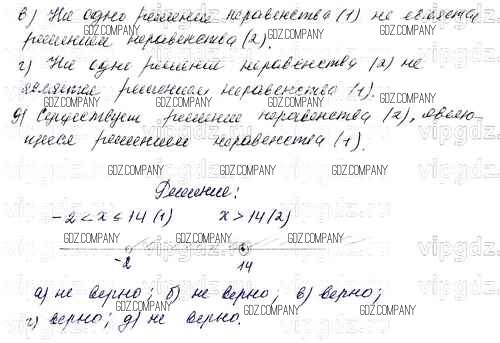 в) Ни одно решение неравенства (1) не является
решением неравенства (2).
г) Ни одно решение неравенства (2) не
является решением неравенства (1).
д) Существует решение неравенства (2), являю-
щееся решением неравенства (1).
Решение:
-2 < x ≤ 14 (1) x > 14 (2)
-2 14
а) не верно; б) не верно; в) верно;
г) верно; д) не верно.